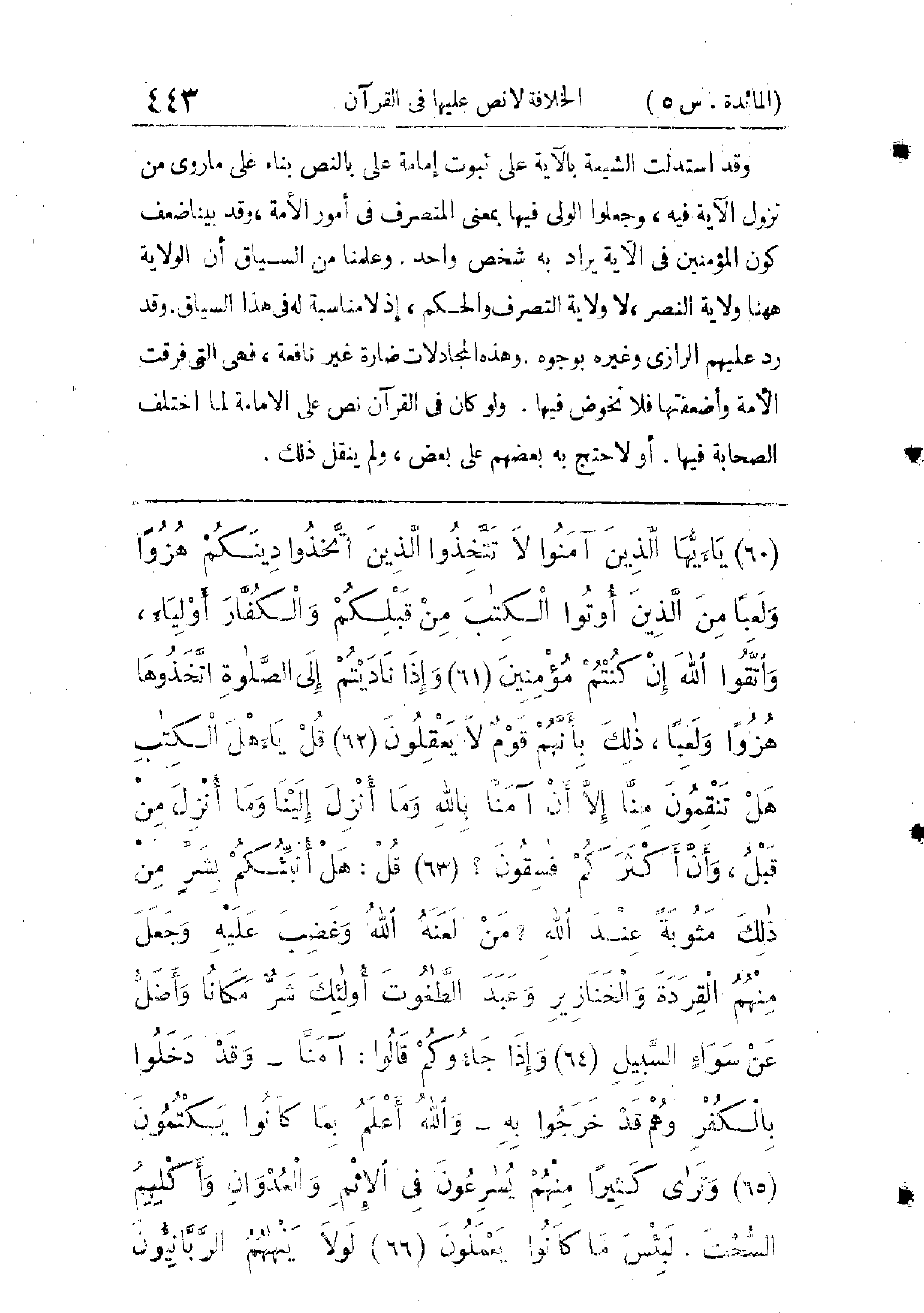 (المائدة . س ٥) الخلافة لا نص عليها فى القرآن ٤٤٣
وقد استدلت الشيعة بالآية على ثبوت إمامة على بالنص بناء على ماروى من
نزول الآية فيه ، وجعلوا الولى فيها بمعنى المتصرف فى أمور الأمة ، وقد بينا ضعف
كون المؤمنين فى الآية يراد به شخص واحد . وعلمنا من السياق أن الولاية
ههنا ولاية النصر ، لا ولاية التصرف والحكم ، إذ لا مناسبة له فى هذا السياق . وقد
رد عليهم الرازى وغيره بوجوه . وهذه المجادلات ضارة غير نافعة ، فهى التى فرقت
الأمة وأضعفتها فلا نخوض فيها . ولو كان فى القرآن نص على الامامة لما اختلف
الصحابة فيها . أو لاحتج به بعضهم على بعض ، ولم ينقل ذلك .
(٦٠) يَاءَيُّهَا الَّذِينَ آمَنُوا لاَ تَتَّخِذُوا الَّذِينَ اتَّخَذُوا دِينَكُمْ هُزُوًا
وَلَعِبًا مِنَ الَّذِينَ أُوتُوا الْكِتٰبَ مِنْ قَبْلِكُمْ وَالْكُفَّارَ أَوْلِيَاءَ ،
وَاتَّقُوا اللهَ إِنْ كُنْتُمْ مُؤْمِنِينَ (٦١) وَإِذَا نَادَيْتُمْ إِلَى الصَّلٰوةِ اتَّخَذُوهَا
هُزُوًا وَلَعِبًا ، ذٰلِكَ بِأَنَّهُمْ قَوْمٌ لاَ يَعْقِلُونَ (٦٢) قُلْ يَاءَهْلَ الْكِتٰبِ
هَلْ تَنْقِمُونَ مِنَّا إِلاَّ أَنْ آمَنَّا بِاللهِ وَمَا أُنْزِلَ إِلَيْنَا وَمَا أُنْزِلَ مِنْ
قَبْلُ ، وَأَنَّ أَكْثَرَكُمْ فٰسِقُونَ ؟ (٦٣) قُلْ : هَلْ أُنَبِّئُكُمْ بِشَرٍّ مِنْ
ذٰلِكَ مَثُوبَةً عِنْدَ اللهِ ؟ مَنْ لَعَنَهُ اللهُ وَغَضِبَ عَلَيْهِ وَجَعَلَ
مِنْهُمُ الْقِرَدَةَ وَالْخَنَازِيرِ وَعَبَدَ الطَّٰغُوتَ أُولٰئِكَ شَرٌّ مَكَانًا وَأَضَلُّ
عَنْ سَوَاءِ السَّبِيلِ (٦٤) وَإِذَا جَاءُوكُمْ قَالُوا : آمَنَّا ـ وَقَدْ دَخَلُوا
بِالْكُفْرِ وَهُمْ قَدْ خَرَجُوا بِهِ ـ وَاللهُ أَعْلَمُ بِمَا كَانُوا يَكْتُمُونَ
(٦٥) وَتَرٰى كَثِيرًا مِنْهُمْ يُسٰرِعُونَ فِى الإِثْمِ وَالْعُدْوَانِ وَأَكْلِهِمُ
السُّحْتَ . لَبِئْسَ مَا كَانُوا يَعْمَلُونَ (٦٦) لَوْلاَ يَنْهٰهُمُ الرَّبَّانِيُّونَ